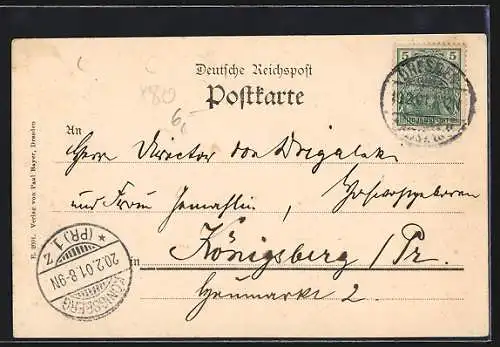 5 5
DRESDEN
Deutsche Reichspost
Postkarte
6,-
An
Herrn Director von Drigalski
und Frau Gemahlin, Hochwohlgeboren
in Königsberg / Pr.
Heumarkt 2.
KÖNIGSBERG
(PR.) 1
Z
20.2.01.8-9N
R. 2091. Verlag von Paul Bayer, Dresden